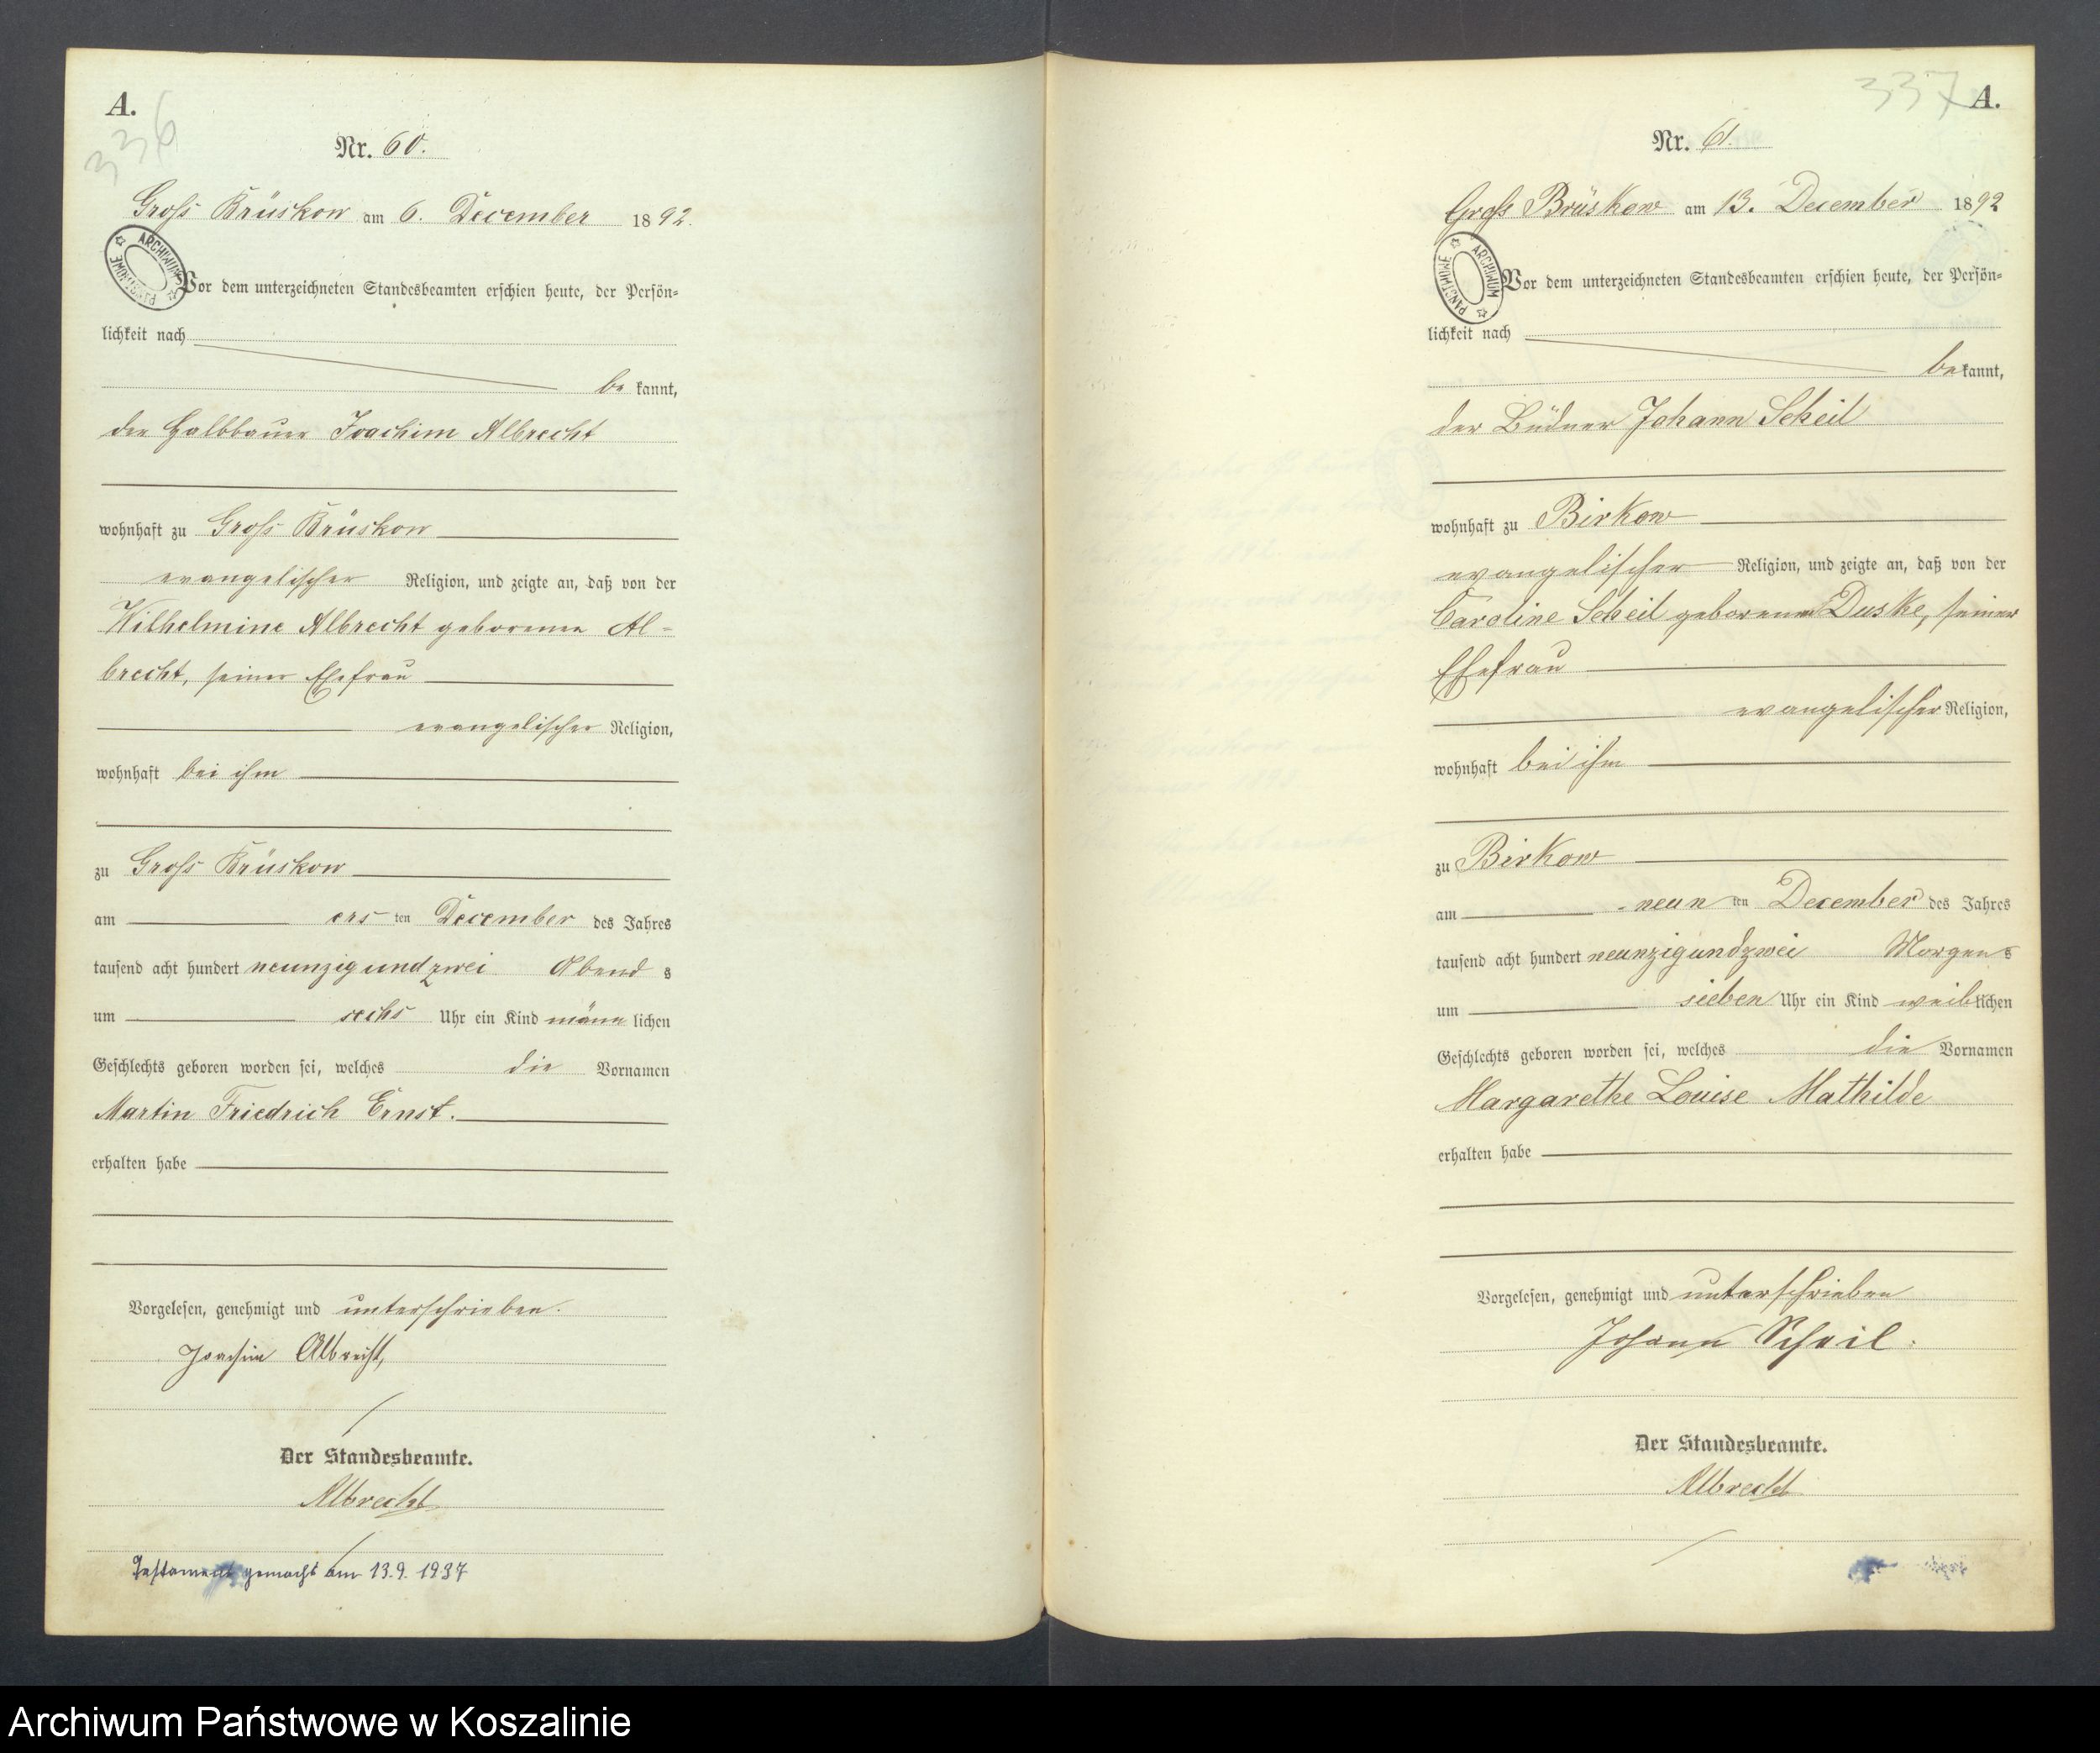 A.
336
Nr. 60.
Groß Brüskow am 6. December 1892.
ARCHIWUM PAŃSTWOWE
Vor dem unterzeichneten Standesbeamten erschien heute, der Persön=
lichkeit nach
be kannt,
der Halbbauer Joachim Albrecht
wohnhaft zu Groß Brüskow
evangelischer Religion, und zeigte an, daß von der
Wilhelmine Albrecht geborenen Al-
brecht, seiner Ehefrau
evangelischer Religion,
wohnhaft bei ihm
zu Groß Brüskow
am ers ten December des Jahres
tausend acht hundert neunzigundzwei Abend s
um sechs Uhr ein Kind männ lichen
Geschlechts geboren worden sei, welches die Vornamen
Martin Friedrich Ernst.
erhalten habe
Vorgelesen, genehmigt und unterschrieben.
Joachim Albrecht,
Der Standesbeamte.
Albrecht
Testament gemacht am 13.9.1937
337
A.
Nr. 61.
Groß Brüskow am 13. December 1892
ARCHIWUM PAŃSTWOWE
Vor dem unterzeichneten Standesbeamten erschien heute, der Persön=
lichkeit nach
be kannt,
der Büdner Johann Scheil
wohnhaft zu Birkow
evangelischer Religion, und zeigte an, daß von der
Caroline Scheil geborenen Duske, seiner
Ehefrau
evangelischer Religion,
wohnhaft bei ihm
zu Birkow
am neun ten December des Jahres
tausend acht hundert neunzigundzwei Morgen s
um sieben Uhr ein Kind weib lichen
Geschlechts geboren worden sei, welches die Vornamen
Margarethe Louise Mathilde
erhalten habe
Vorgelesen, genehmigt und unterschrieben
Johann Scheil.
Der Standesbeamte.
Albrecht
Archiwum Państwowe w Koszalinie